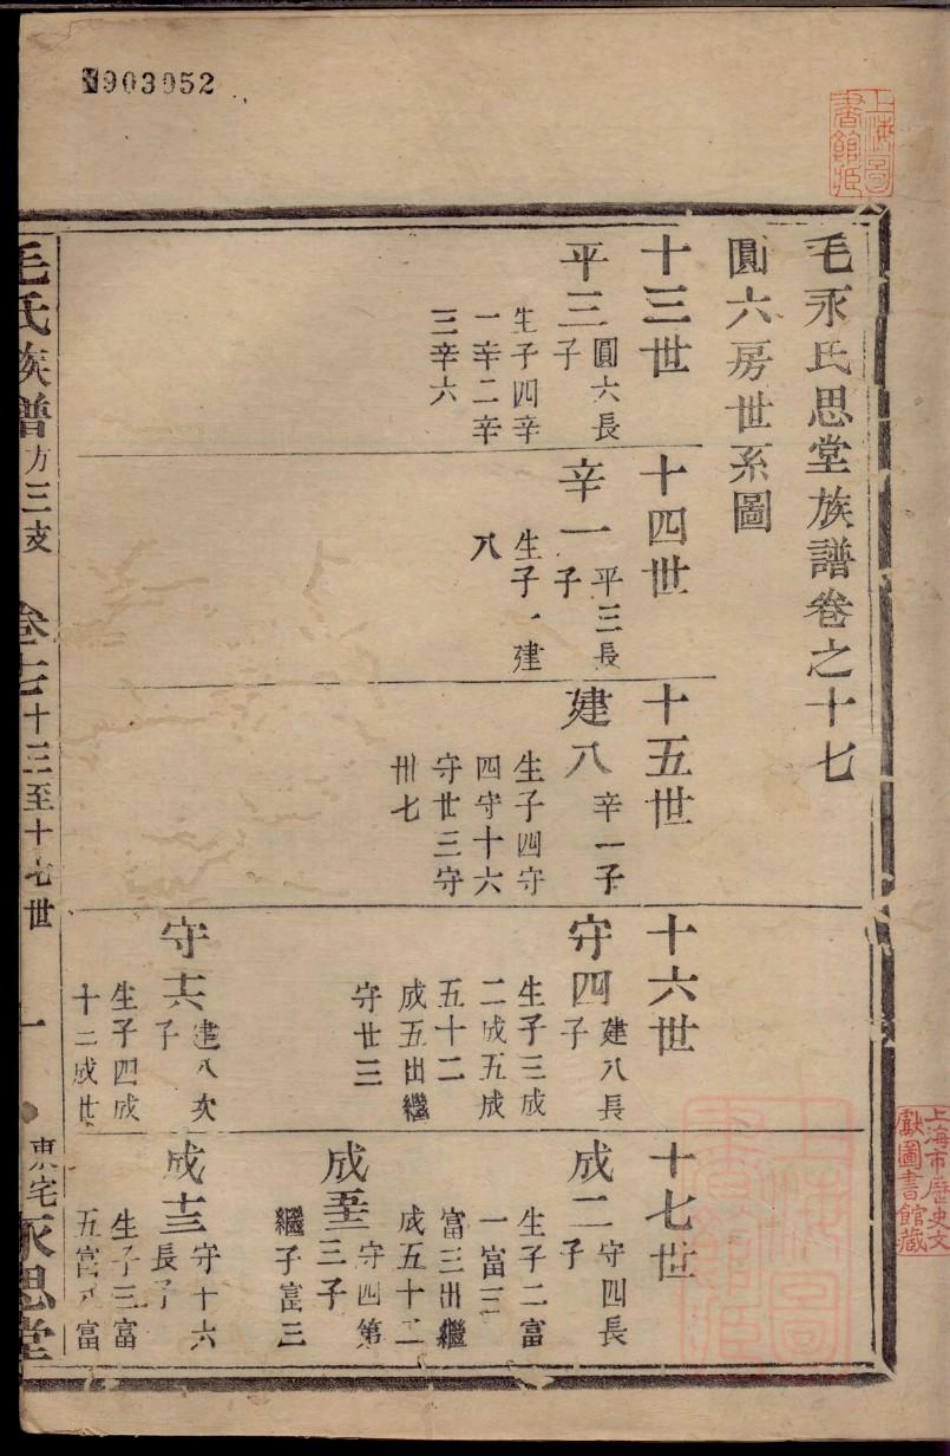 903052
上海圖
書館藏
毛氶氏思堂族譜卷之十七
圓六房世系圖
十三世
平三
圓六長
子
生子四辛
一辛二辛
三辛六
十四世
辛一
平三長
子
生子一建
八
十五世
建八
辛一子
生子四守
四守十六
守廿三守
卅七
十六世
守四
建八長
子
生子三成
二成五成
五十二
成五出繼
守廿三
守十六
建八次
子
生子四成
十二成廿
十七世
成二
守四長
子
生子二富
一富三
富三出繼
成五十二
成五十二
守四第
三子
繼子富三
成十二
守十六
長子
生子三富
五富八富
毛氏族譜
方三支
卷十七
十三至十七世
一
東宅
永思堂
上海市歷史文
獻圖書館藏